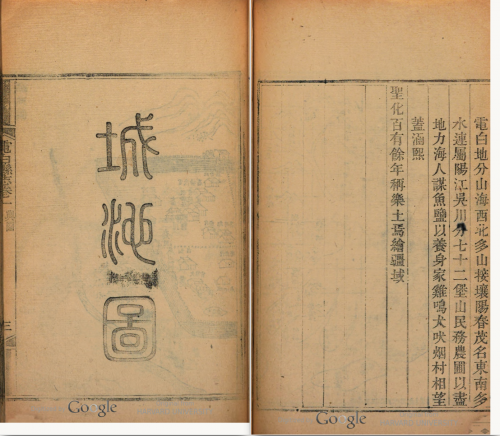 電白地分山海西北多山接壤陽春茂名東南多
水連屬陽江吳川分七十二堡山民務農圃以盡
地力海人謀魚鹽以養身家雞鳴犬吠烟村相望
蓋涵熙
聖化百有餘年稱樂土焉繪疆域
城池圖
電白縣志
三
Google
Google